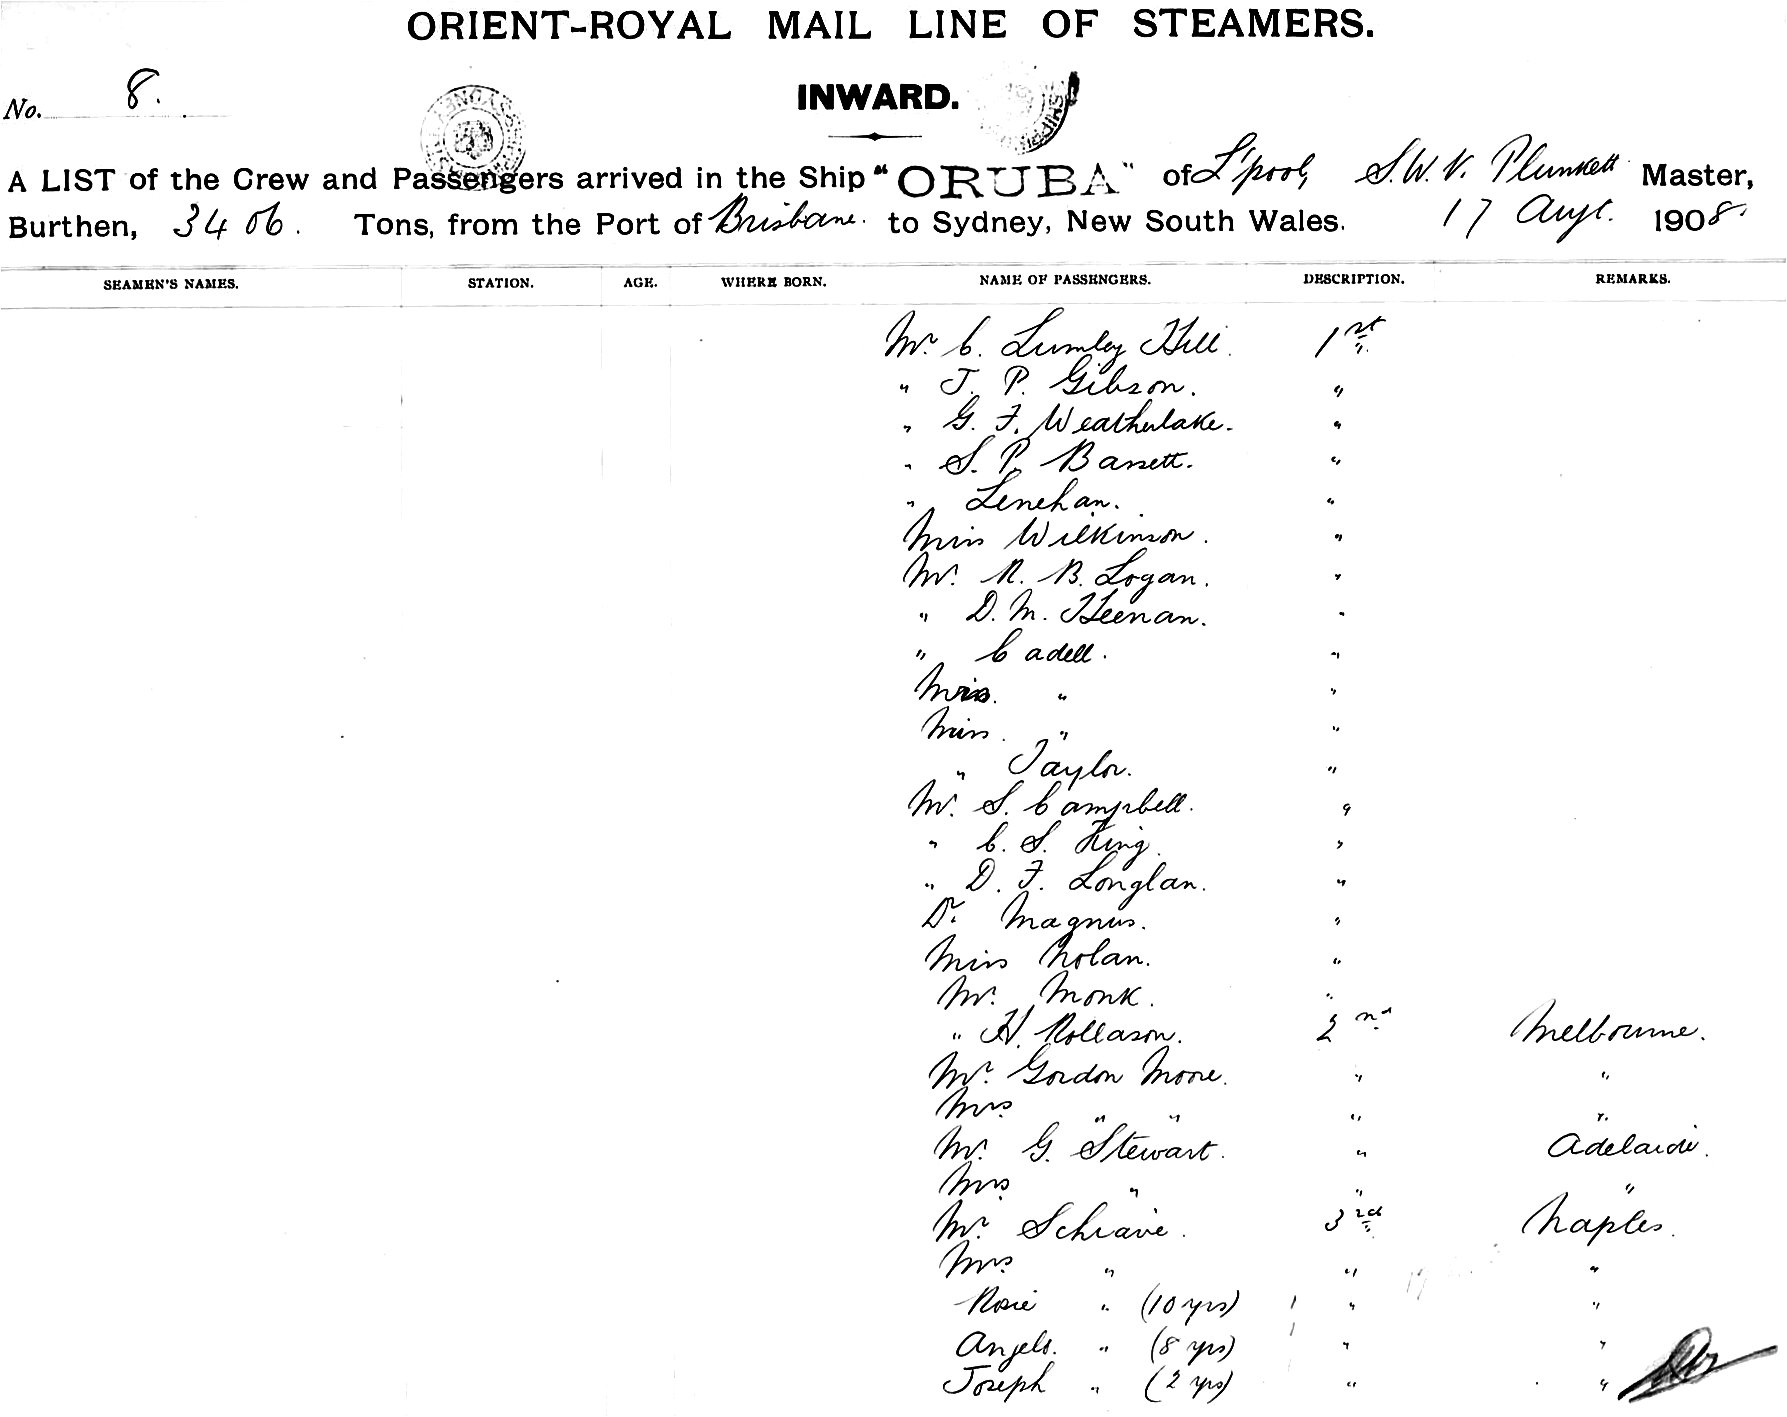 ORIENT-ROYAL MAIL LINE OF STEAMERS.
No. 8.
INWARD.
A LIST of the Crew and Passengers arrived in the Ship "ORUBA" of L'pool, S.W.V. Plunkett Master,
Burthen, 3406. Tons, from the Port of Brisbane. to Sydney, New South Wales. 17 Augt. 1908.
SEAMEN'S NAMES. STATION. AGE. WHERE BORN. NAME OF PASSENGERS. DESCRIPTION. REMARKS.
Mr. C. Lumley Hill. 1st
" J. P. Gibson. "
" G. F. Weatherlake. "
" S. P. Bassett. "
" Lenehan. "
Miss Wilkinson. "
Mr. R. B. Logan. "
" D. M. Heenan. "
" Cadell. "
Mrs. " "
Miss. " "
" Taylor. "
Mr. S. Campbell. "
" C. S. King. "
" D. F. Longlan. "
Dr. Magnus. "
Miss Nolan. "
Mr. Monk. "
" H. Rollason. 2nd Melbourne.
Mr. Gordon Moore. " "
Mrs " " " "
Mr. G. Stewart. " Adelaide.
Mrs " " "
Mr. Schiave. 3rd Naples.
Mrs " " "
Rosie " (10 yrs) 1 " "
Angelo. " (8 yrs) 1 " "
Joseph " (2 yrs) " "